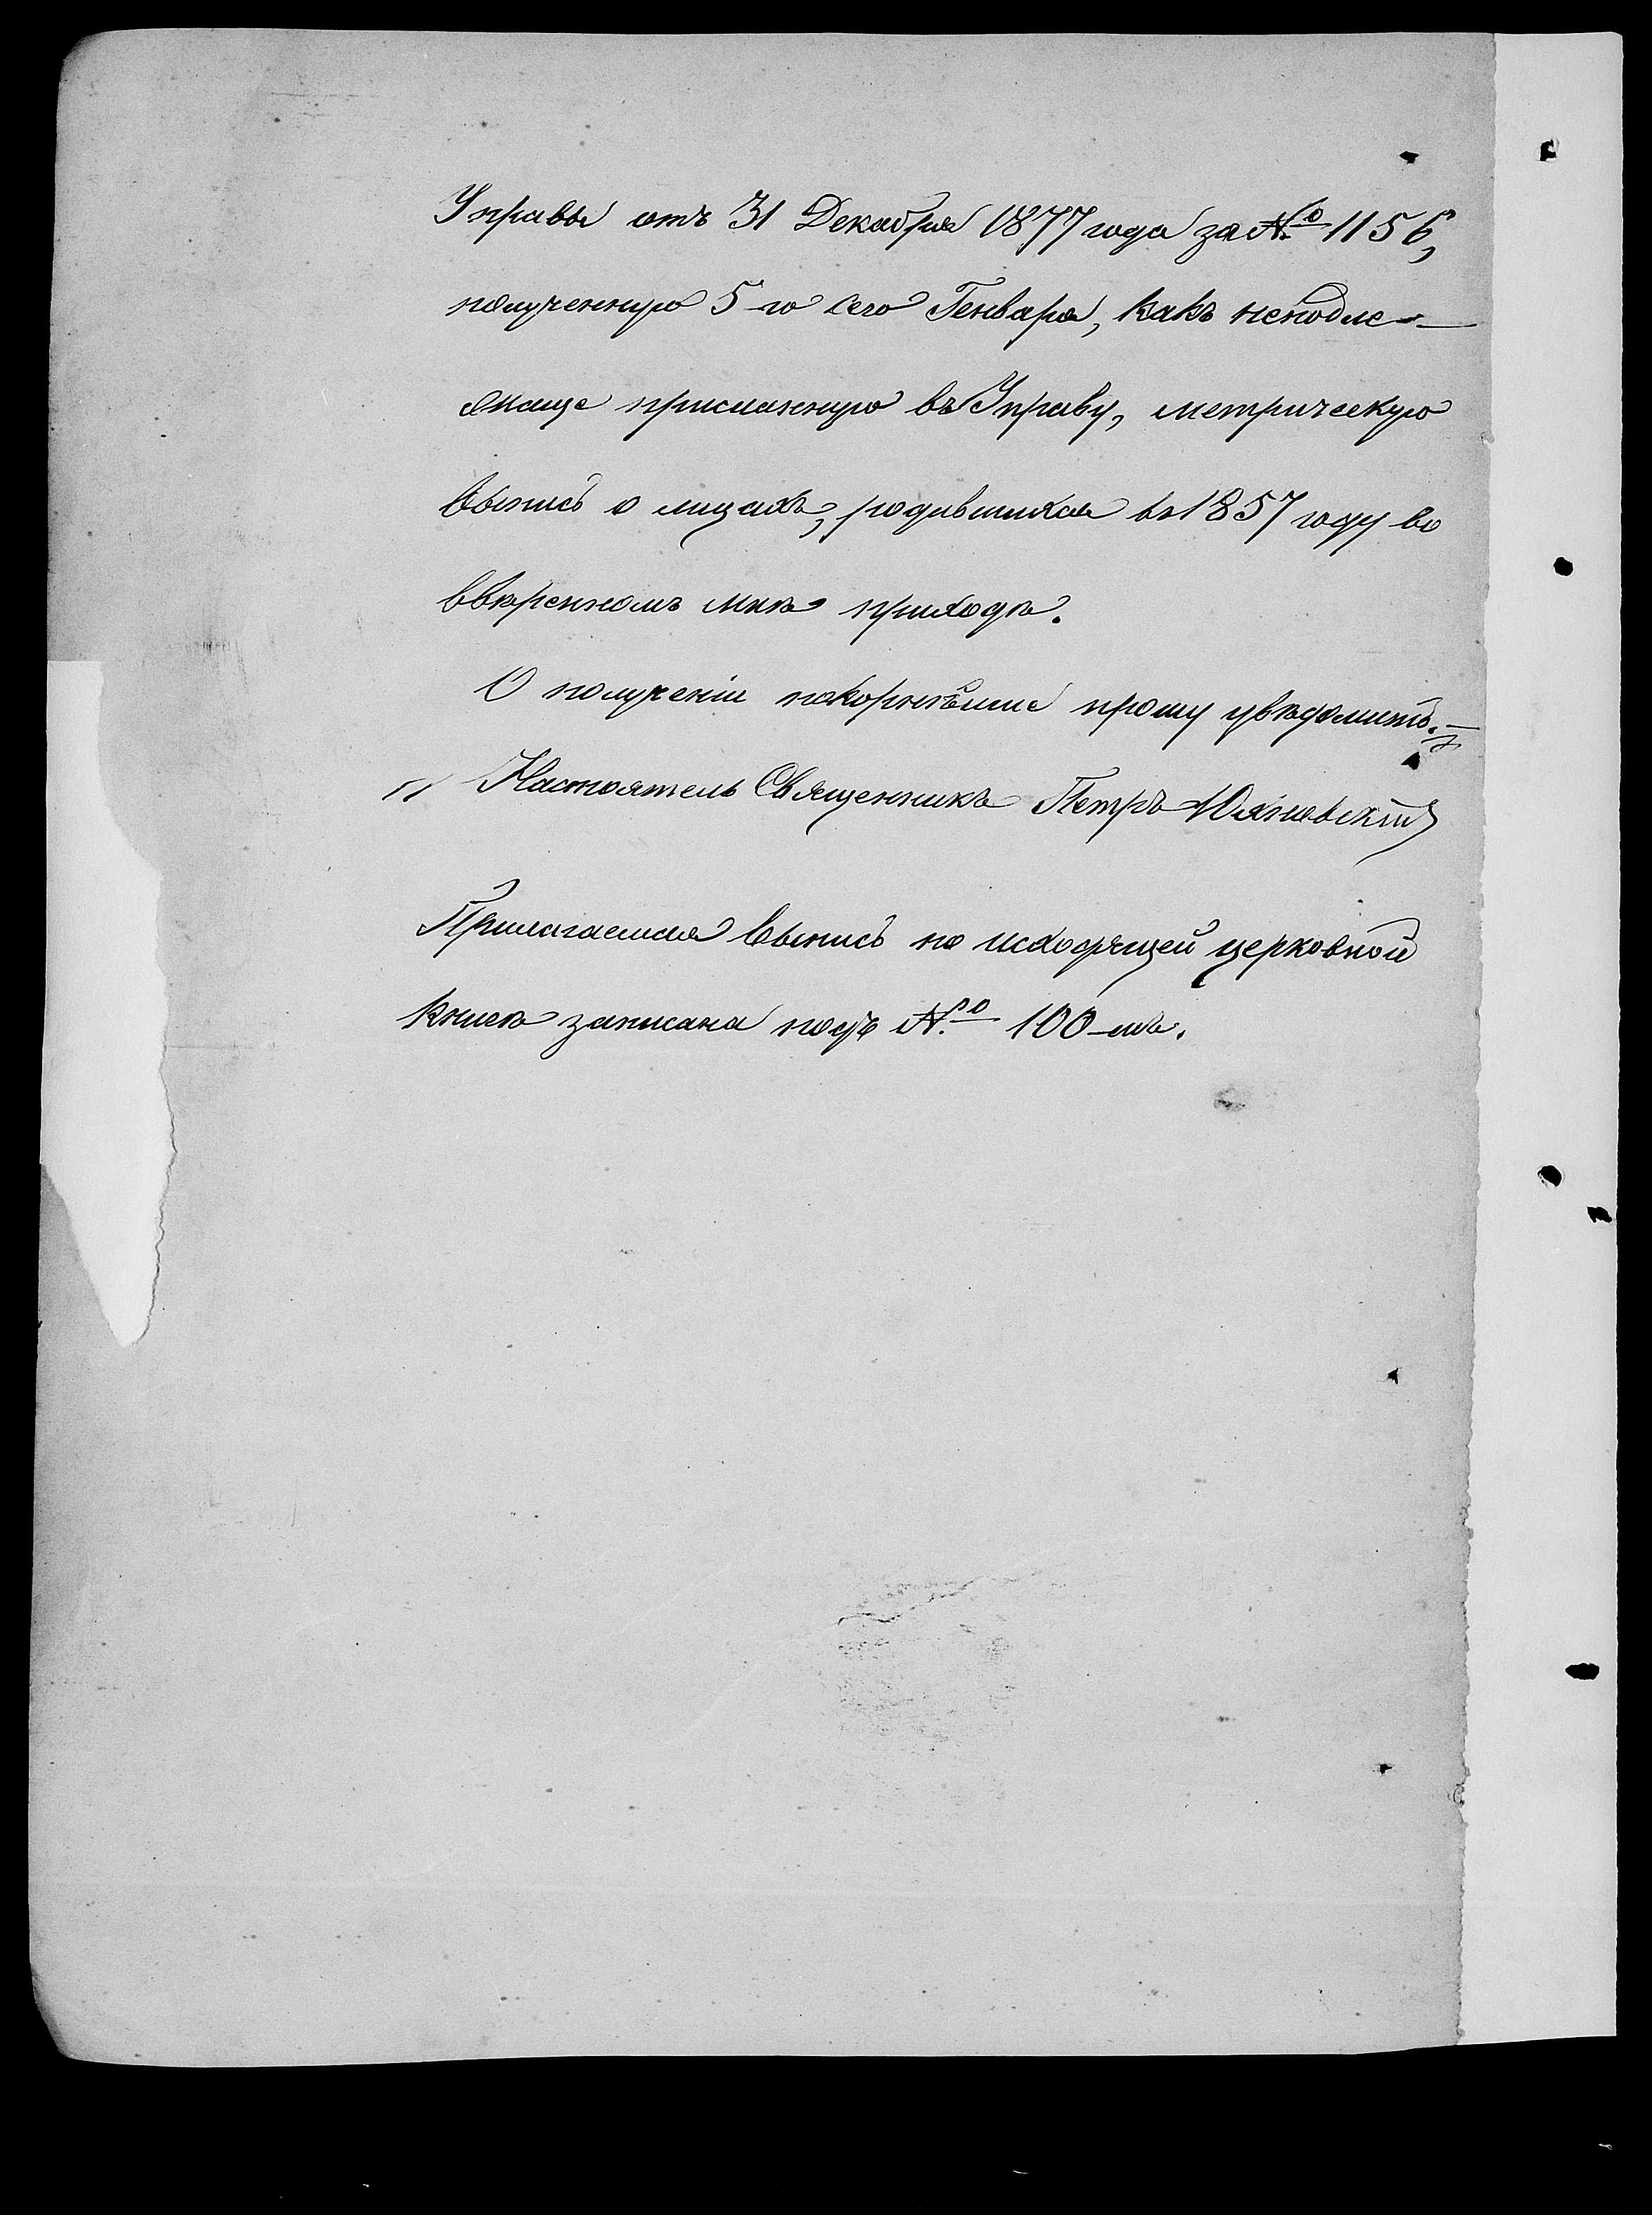 Управы отъ 31 Декабря 1877 года за №о 1156,
полученную 5-го сего Генваря, какъ неподле-
жаще присланную въ Управу, метрическую
выпись о лицахъ, родившихся въ 1857 году во
ввѣренномъ мнѣ приходѣ.
О полученіи покорнѣйше прошу увѣдомить.
Настоятель Священникъ Петръ
Прилагаемая выпись по исходящей церковной
книгѣ записана подъ №о 100-мъ.